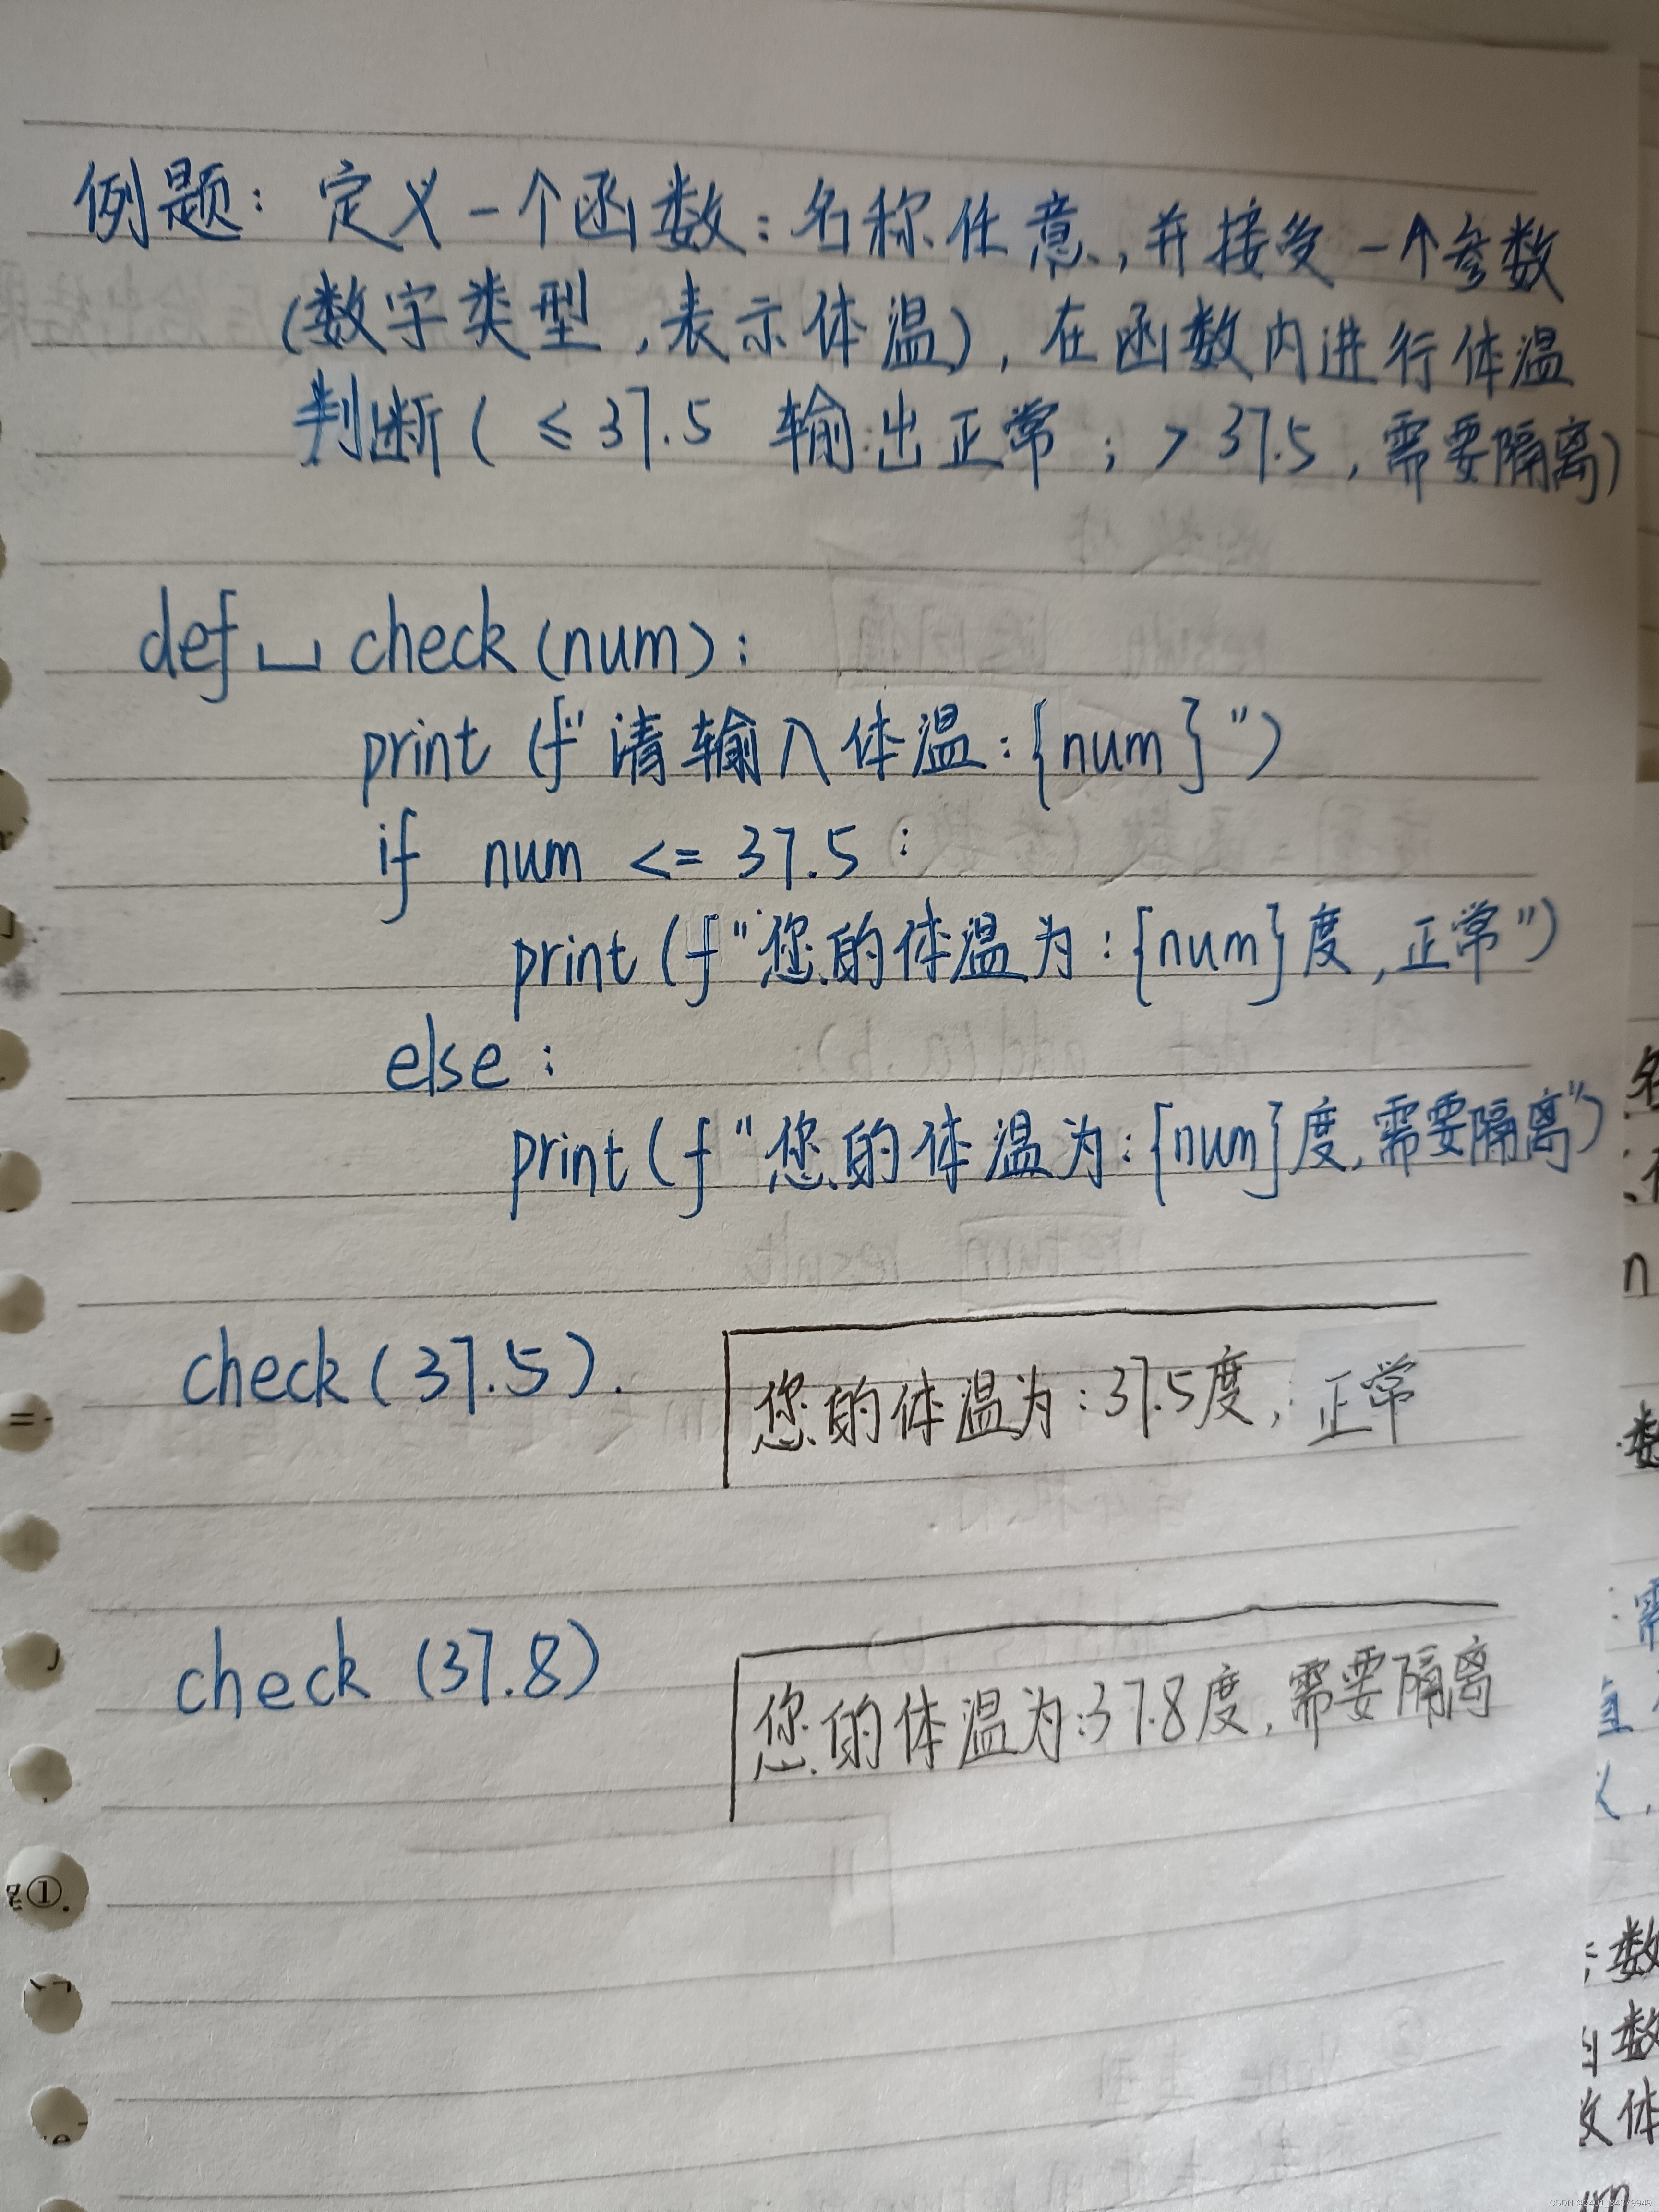 例题: 定义一个函数:名称任意,并接受一个参数
(数字类型,表示体温),在函数内进行体温
判断(≤37.5 输出正常;>37.5,需要隔离)
def␣check(num):
print(f"请输入体温:{num}")
if num <= 37.5:
print(f"您的体温为:{num}度,正常")
else:
print(f"您的体温为:{num}度,需要隔离")
check(37.5).
您的体温为:37.5度,正常
check(37.8)
您的体温为:37.8度,需要隔离